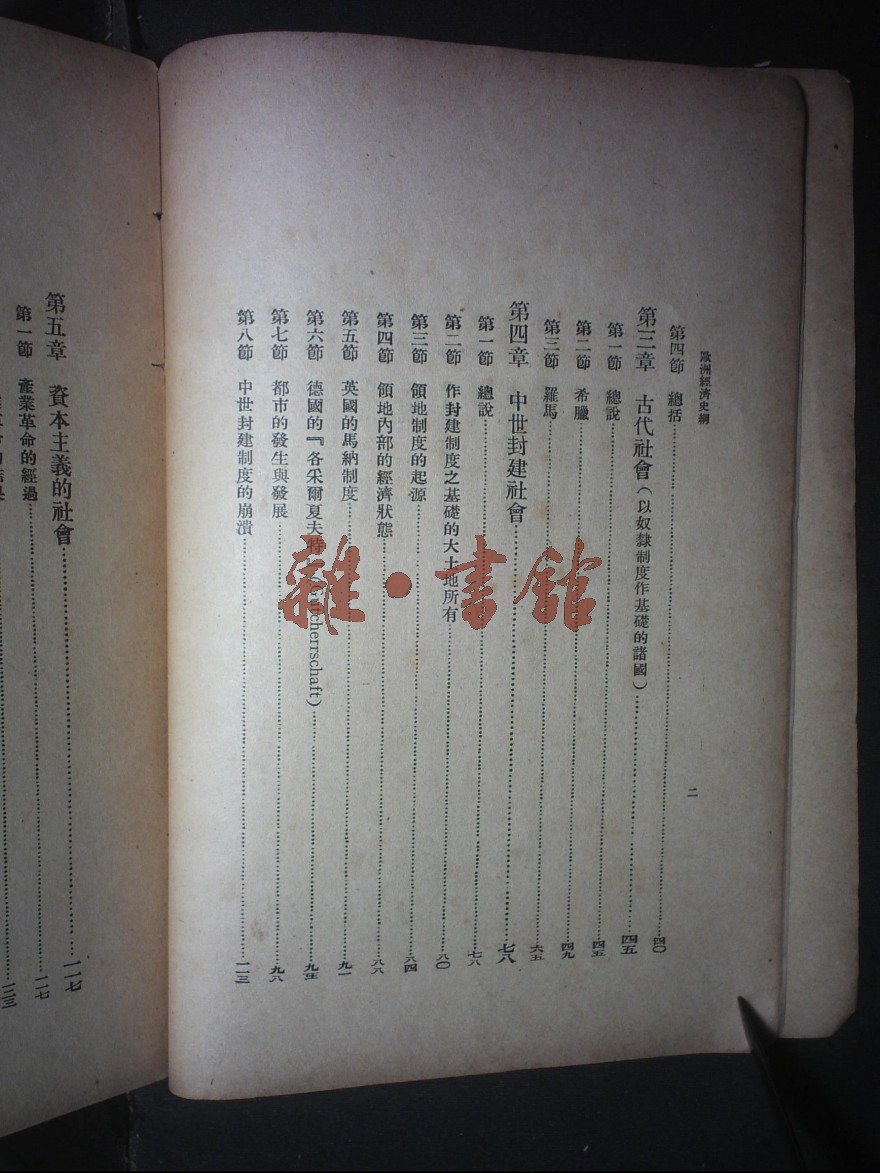 歐洲經濟史綱
二
第四節　總括……四〇
第三章　古代社會（以奴隸制度作基礎的諸國）……四五
第一節　總說……四五
第二節　希臘……四九
第三節　羅馬……六五
第四章　中世封建社會……七八
第一節　總說……七八
第二節　作封建制度之基礎的大土地所有……八〇
第三節　領地制度的起源……八四
第四節　領地內部的經濟狀態……八八
第五節　英國的馬納制度……九一
第六節　德國的『各采爾夏夫特 (Gutcherrschaft)……九五
第七節　都市的發生與發展……九八
第八節　中世封建制度的崩潰……一一三
第五章　資本主義的社會……一一七
第一節　產業革命的經過……一一七
一二三
雜·書館